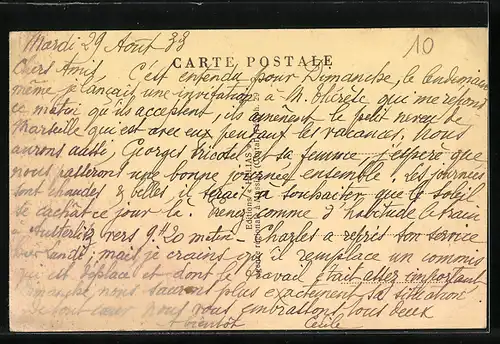 Mardi 29 Août 33
10
CARTE POSTALE
Chers Amis, C'est entendu pour Dimanche, le lendemain
même je lançais une invitation à M. Thérèse qui me répond
ce matin qu'ils acceptent, ils amènent le petit neveu de
Marseille qui est avec eux pendant les vacances, nous
aurons aussi, Georges Nicolet & sa femme, j'espère que
nous passerons une bonne journée ensemble. Les journées
sont chaudes & belles il serait à souhaiter que le soleil
se cachât ce jour là. Prenez comme d'habitude le train
à Austerlitz vers 9h20 matin - Charles a repris son service
mais je crains qu'il remplace un commis
qui est déplacé et dont le travail était assez important
Dimanche, nous saurons plus exactement sa situation
tout cœur nous vous embrassons tous deux
à bientôt Cécile
Editions